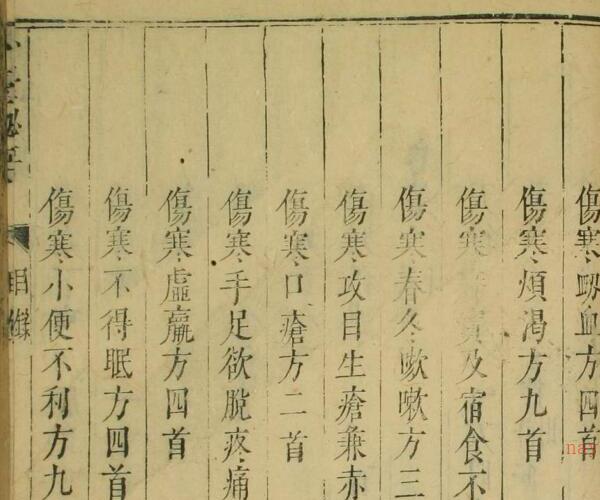 傷寒衂血方四首
傷寒煩渴方九首
傷寒及宿食不
傷寒春冬嗽嗽方三
傷寒攻目生瘡兼赤
傷寒口瘡方二首
傷寒手足欲脫疼痛
傷寒虛羸方四首
傷寒不得眠方四首
傷寒小便不利方九
目錄